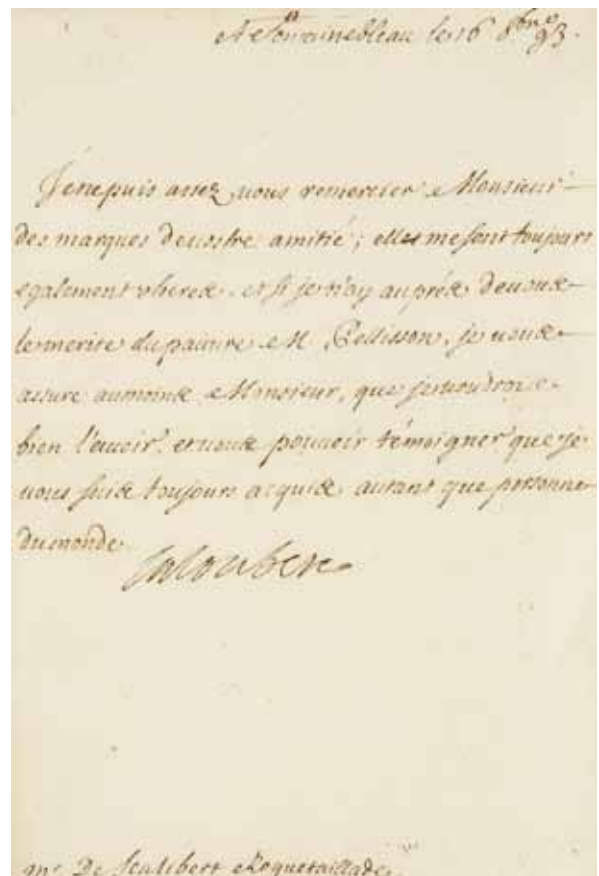 A Fontainebleau le 16 8bre 93.
Je ne puis assez vous remercier Monsieur
des marques de vostre amitié; elles me sont toujours
egalement cheres. et si je n'ay auprés de vous
le merite du pauvre M. Pellisson, je vous
assure au moins Monsieur, que je voudrois
bien l'avoir. et vous pouvoir témoigner que je
vous suis toujours acquis autant que personne
du monde.
Laloubere
Mr. De Scalibert Roquetaillade.